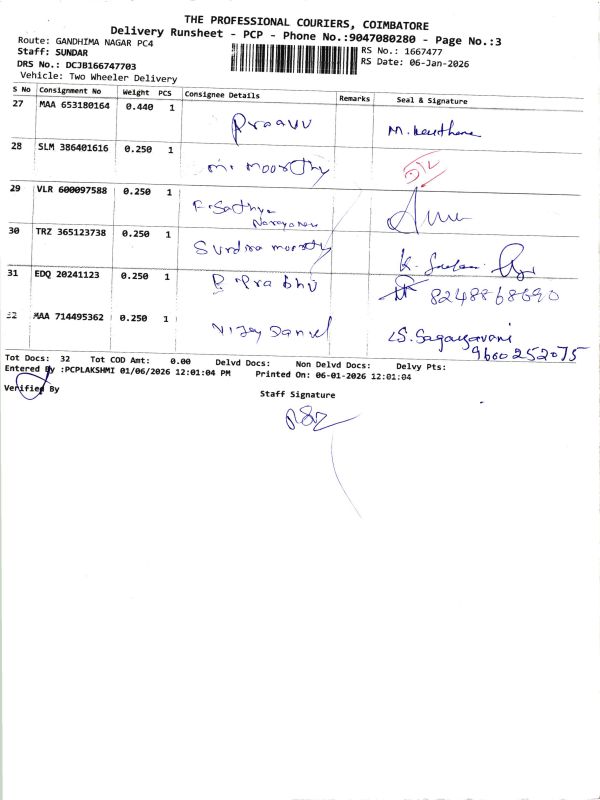 THE PROFESSIONAL COURIERS, COIMBATORE
Delivery Runsheet - PCP - Phone No.:9047080280 - Page No.:3
Route: GANDHIMA NAGAR PC4
RS No.: 1667477
Staff: SUNDAR
RS Date: 06-Jan-2026
DRS No.: DCJB166747703
Vehicle: Two Wheeler Delivery
S No Consignment No Weight PCS Consignee Details Remarks Seal & Signature
27 MAA 653180164 0.440 1 M. Keerthana
28 SLM 386401616 0.250 1 M. Moorthy
29 VLR 600097588 0.250 1 P. Sathya
Narayanan
30 TRZ 365123738 0.250 1 Sundra moorthy K.
31 EDQ 20241123 0.250 1 B. Prabhu 8248868690
32 MAA 714495362 0.250 1 Vijay Daniel S. Sagayavani
9600252075
Tot Docs: 32 Tot COD Amt: 0.00 Delvd Docs: Non Delvd Docs: Delvy Pts:
Entered By :PCPLAKSHMI 01/06/2026 12:01:04 PM Printed On: 06-01-2026 12:01:04
Verified By
Staff Signature